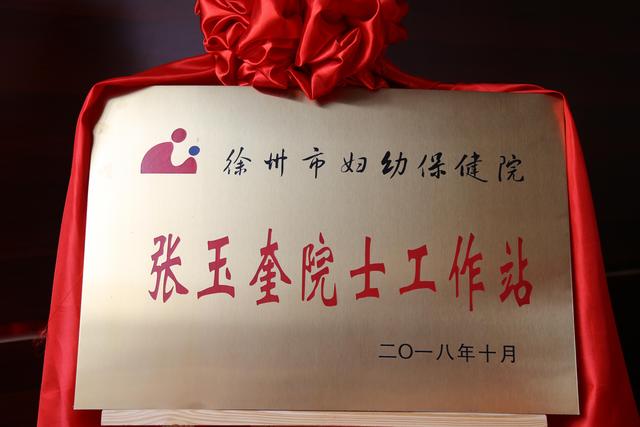 徐州市妇幼保健院
张玉奎院士工作站
二〇一八年十月